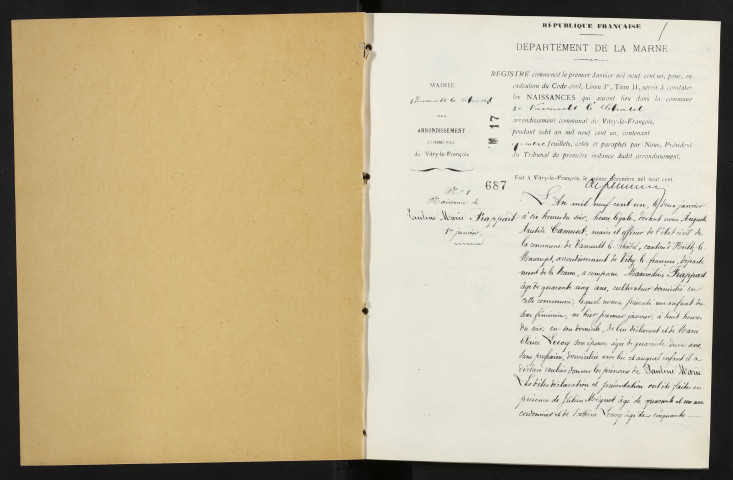 RÉPUBLIQUE FRANÇAISE
1
DÉPARTEMENT DE LA MARNE
MAIRIE
de Vanault le Châtel
ARRONDISSEMENT
COMMUNAL
de Vitry-le-François
N° 17
REGISTRE commencé le premier Janvier mil neuf cent un, pour, en
exécution du Code civil, Livre Ier, Titre II, servir à constater
les NAISSANCES qui auront lieu dans la commune
de Vanault le Châtel
arrondissement communal de Vitry-le-François,
pendant ledit an mil neuf cent un, contenant
feuillets, cotés et paraphés par Nous, Président
du Tribunal de première instance dudit arrondissement.
Fait à Vitry-le-François, le quinze décembre mil neuf cent.
687
N° 1
Naissance de
Pauline Marie Frappart
1er janvier
L'An mil neuf cent un, le deux janvier
à six heures du soir, heure légale, devant nous Auguste
Aristide Camuset, maire et officier de l'état civil de
la commune de Vanault le Châtel, canton d'Heiltz le
Maurupt, arrondissement de Vitry le françois, départe
ment de la Marne, a comparu Maximilien Frappart
âgé de quarante cinq ans, cultivateur domicilié en
cette commune; lequel nous a présenté un enfant du
sexe féminin, né hier premier janvier, à huit heures
du soir, en son domicile, de lui déclarant et de Marie
Leroy son épouse âgée de quarante deux ans,
sans profession, domiciliée avec lui et auquel enfant il a
déclaré vouloir donner les prénoms de Pauline Marie
Les dites déclaration et présentation ont été faites en
présence de Mignot âgé de quarante et un ans
cordonnier et de Leroy âgé de cinquante